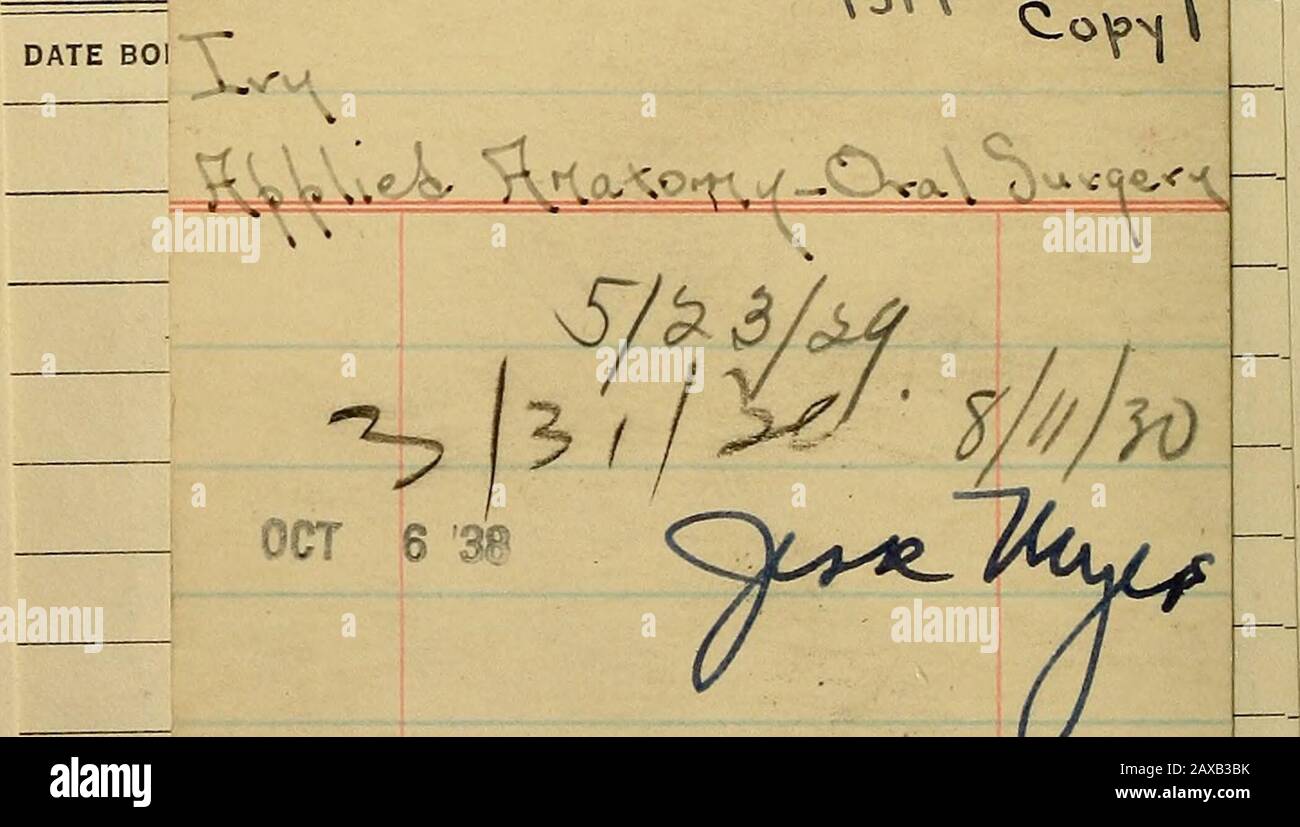 Copy 1
DATE BO
Ivy
Applied Anatomy-Oral Surgery
5/23/29.
3/31/30 8/11/30
OCT 6 '38 Jesse Meyer
alamy
alamy
alamy
alamy
alamy Image ID: 2AXB3BK
www.alamy.com